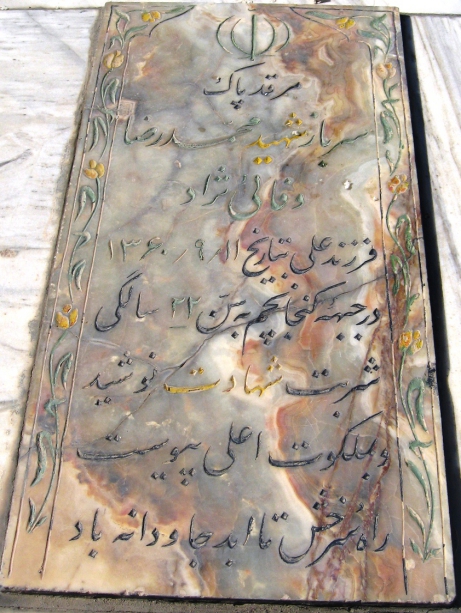 مرقد پاک
سرباز شهید محمدرضا
وفائی نژاد
فرزند علی بتاریخ ۱۱ـ۹ـ۱۳۶۰
در جبهه گنجانچم به سن ۲۲ سالگی
شربت شهادت نوشید
و بملکوت اعلی پیوست
راه سرخش تا ابد جاودانه باد